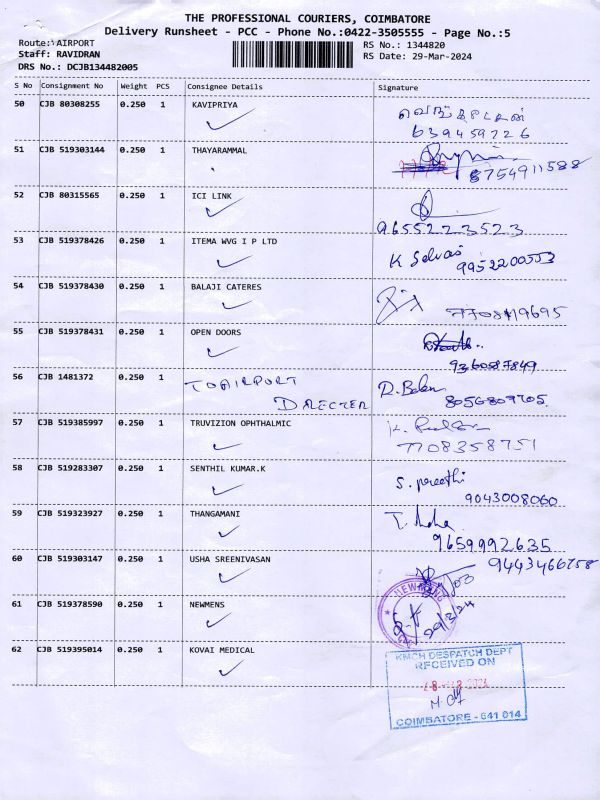 THE PROFESSIONAL COURIERS, COIMBATORE
Delivery Runsheet - PCC - Phone No.:0422-3505555 - Page No.:5
Route: AIRPORT RS No.: 1344820
Staff: RAVIDRAN RS Date: 29-Mar-2024
DRS No.: DCJB134482005
S No Consignment No Weight PCS Consignee Details Signature
50 CJB 80308255 0.250 1 KAVIPRIYA
6394459726
51 CJB 519303144 0.250 1 THAYARAMMAL
8754911588
52 CJB 80315565 0.250 1 ICI LINK
9655223523
53 CJB 519378426 0.250 1 ITEMA WVG I P LTD K Selvas
9952200553
54 CJB 519378430 0.250 1 BALAJI CATERES
7708419695
55 CJB 519378431 0.250 1 OPEN DOORS
9360587849
56 CJB 1481372 0.250 1 TO AIRPORT
DIRECTER 8056809705
57 CJB 519385997 0.250 1 TRUVIZION OPHTHALMIC
7708358751
58 CJB 519283307 0.250 1 SENTHIL KUMAR.K S. preethi
9043008060
59 CJB 519323927 0.250 1 THANGAMANI T. Asha
9659992635
60 CJB 519303147 0.250 1 USHA SREENIVASAN 9443466758
61 CJB 519378590 0.250 1 NEWMENS NEWMENS
29/3/24
62 CJB 519395014 0.250 1 KOVAI MEDICAL KMCH DESPATCH DEPT
RECEIVED ON
COIMBATORE - 641 014